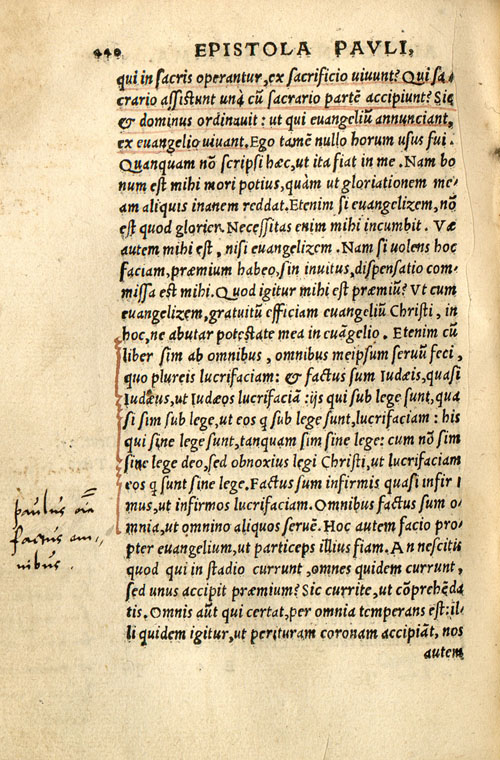 440 EPISTOLA PAVLI,
qui in sacris operantur, ex sacrificio uiuunt? Qui sa‑
crario assistunt unà cū sacrario partē accipiunt? Sic
& dominus ordinauit: ut qui euangeliū annunciant,
ex euangelio uiuant. Ego tamē nullo horum usus fui.
Quanquam nō scripsi hæc, ut ita fiat in me. Nam bo
num est mihi mori potius, quàm ut gloriationem me‑
am aliquis inanem reddat. Etenim si euangelizem, nō
est quod glorier. Necessitas enim mihi incumbit. Væ
autem mihi est, nisi euangelizem. Nam si uolens hoc
faciam, præmium habeo, sin inuitus, dispensatio com‑
missa est mihi. Quod igitur mihi est præmiū? Vt cum
euangelizem, gratuitū efficiam euangeliū Christi, in
hoc, ne abutar potestate mea in euāgelio. Etenim cū
liber sim ab omnibus, omnibus meipsum seruū feci,
quo plureis lucrifaciam: & factus sum Iudæis, quasi
Iudæus, ut Iudæos lucrifaciā: ijs qui sub lege sunt, qua
si sim sub lege, ut eos q̄ sub lege sunt, lucrifaciam: his
qui sine lege sunt, tanquam sim sine lege: cum nō sim
sine lege deo, sed obnoxius legi Christi, ut lucrifaciam
eos q̄ sunt sine lege. Factus sum infirmis quasi infir
mus, ut infirmos lucrifaciam. Omnibus factus sum o‑
mnia, ut omnino aliquos seruē. Hoc autem facio pro‑
pter euangelium, ut particeps illius fiam. An nescitis
quod qui in stadio currunt, omnes quidem currunt,
sed unus accipit præmium? Sic currite, ut cōprehēda
tis. Omnis aūt qui certat, per omnia temperans est: il‑
li quidem igitur, ut perituram coronam accipiāt, nos
autem
paulus oīa
factus om‑
nibus.